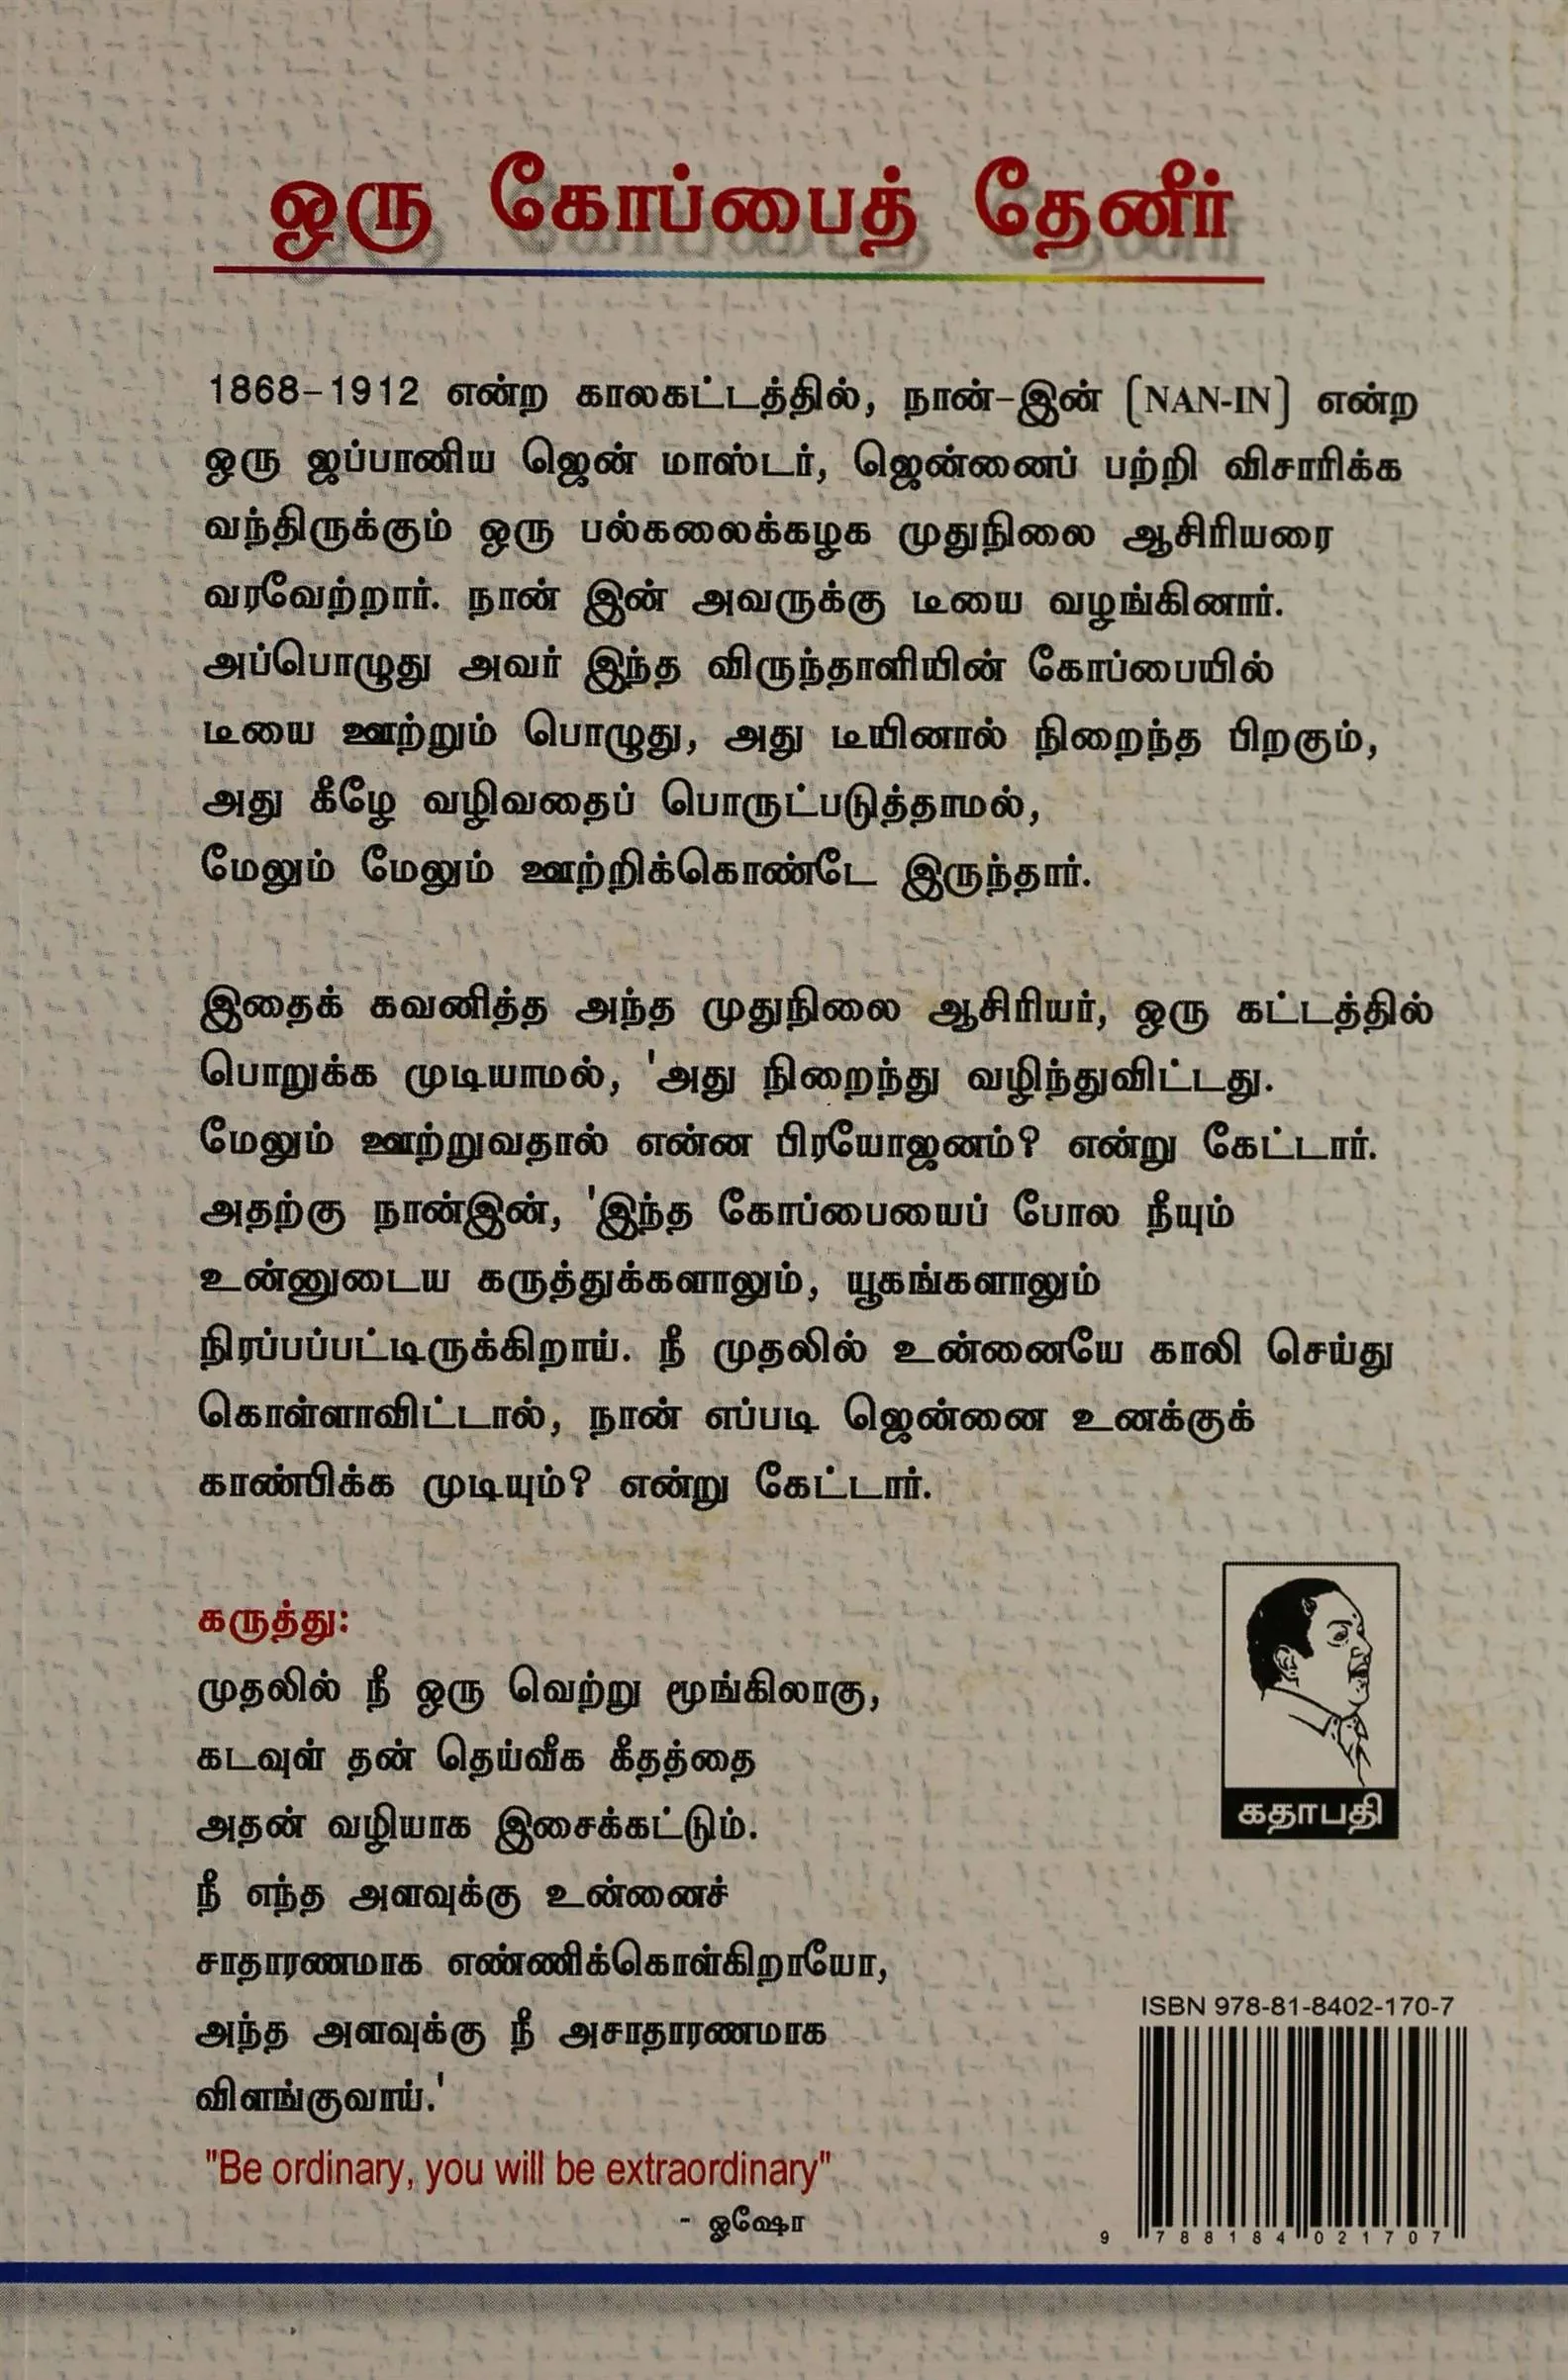 ஒரு கோப்பைத் தேனீர்
1868-1912 என்ற காலகட்டத்தில், நான்-இன் (NAN-IN) என்ற
ஒரு ஜப்பானிய ஜென் மாஸ்டர், ஜென்னைப் பற்றி விசாரிக்க
வந்திருக்கும் ஒரு பல்கலைக்கழக முதுநிலை ஆசிரியரை
வரவேற்றார். நான் இன் அவருக்கு டீயை வழங்கினார்.
அப்பொழுது அவர் இந்த விருந்தாளியின் கோப்பையில்
டீயை ஊற்றும் பொழுது, அது டீயினால் நிறைந்த பிறகும்,
அது கீழே வழிவதைப் பொருட்படுத்தாமல்,
மேலும் மேலும் ஊற்றிக்கொண்டே இருந்தார்.
இதைக் கவனித்த அந்த முதுநிலை ஆசிரியர், ஒரு கட்டத்தில்
பொறுக்க முடியாமல், 'அது நிறைந்து வழிந்துவிட்டது.
மேலும் ஊற்றுவதால் என்ன பிரயோஜனம்? என்று கேட்டார்.
அதற்கு நான்இன், 'இந்த கோப்பையைப் போல நீயும்
உன்னுடைய கருத்துக்களாலும், யூகங்களாலும்
நிரப்பப்பட்டிருக்கிறாய். நீ முதலில் உன்னையே காலி செய்து
கொள்ளாவிட்டால், நான் எப்படி ஜென்னை உனக்குக்
காண்பிக்க முடியும்? என்று கேட்டார்.
கருத்து:
முதலில் நீ ஒரு வெற்று மூங்கிலாகு,
கடவுள் தன் தெய்வீக கீதத்தை
அதன் வழியாக இசைக்கட்டும்.
நீ எந்த அளவுக்கு உன்னைச்
சாதாரணமாக எண்ணிக்கொள்கிறாயோ,
அந்த அளவுக்கு நீ அசாதாரணமாக
விளங்குவாய்.'
"Be ordinary, you will be extraordinary"
- ஓஷோ
கதாபதி
ISBN 978-81-8402-170-7
9 788184 021707